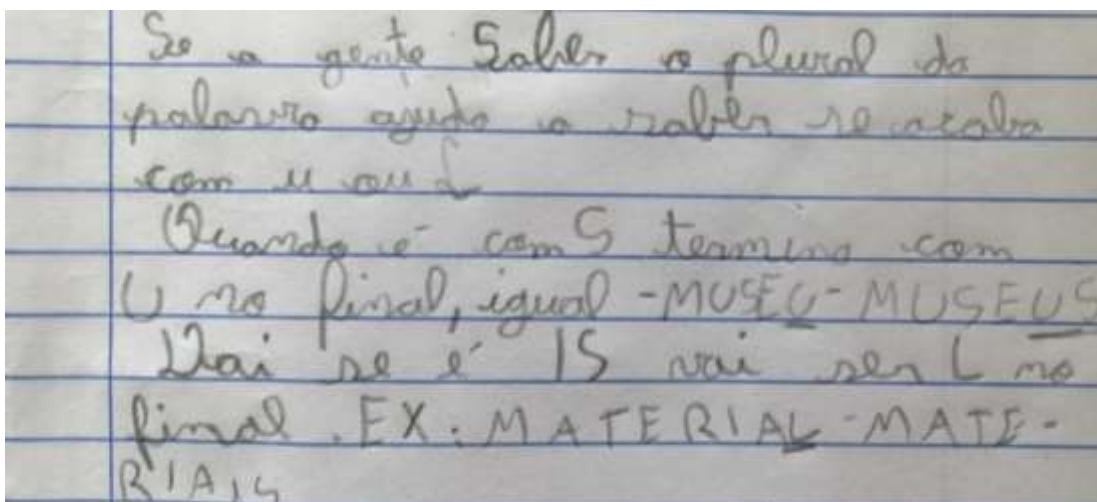 Se a gente Saber o plural da
palavra ajuda a saber se acaba
com u ou L
Quando é com S termina com
U no final, igual -MUSEU- MUSEUS
Dai se é IS vai ser L no
final. EX: MATERIAL -MATE-
RIAIS